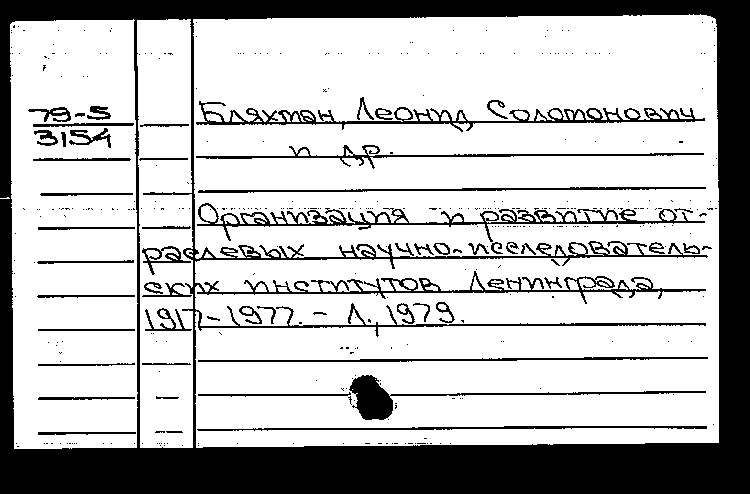 79-5
3154
Бляхман, Леонид Соломонович
и др.
Организация и развитие от-
раслевых научно-исследователь-
ских институтов Ленинграда,
1917-1977. - Л., 1979.